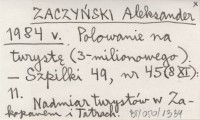 ZACZYŃSKI Aleksander
1984 r. Polowanie na
turystę (3-milionowego).
— Szpilki 49, nr 45 (8 XI):
11.
Nadmiar turystów w Za-
kopanem i Tatrach.